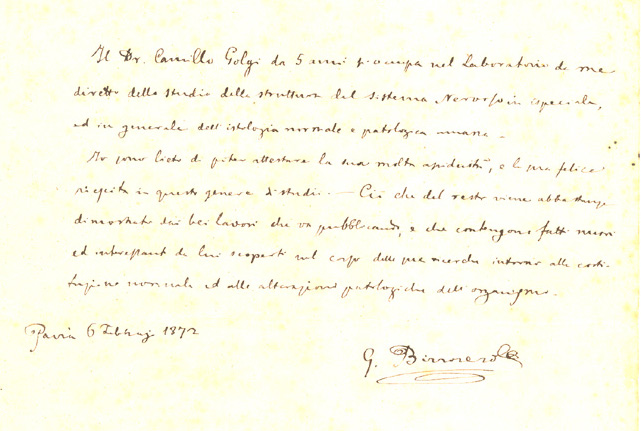 Il Dr. Camillo Golgi da 5 anni s'occupa nel Laboratorio da me
diretto dello studio della struttura del Sistema Nervoso in ispecie,
ed in generale dell'istologia normale e patologica umana.
Io sono lieto di poter attestare la sua molta assiduità, e la sua felice
riescita in questo genere di studii. — Ciò che del resto viene abbastanza
dimostrato dai bei lavori che va pubblicando, e che contengono fatti nuovi
ed interessanti da lui scoperti nel corso delle sue ricerche intorno alla costi-
tuzione normale ed alle alterazioni patologiche dell'organismo.
Pavia 6 Febbraj 1872
G. Bizzozero